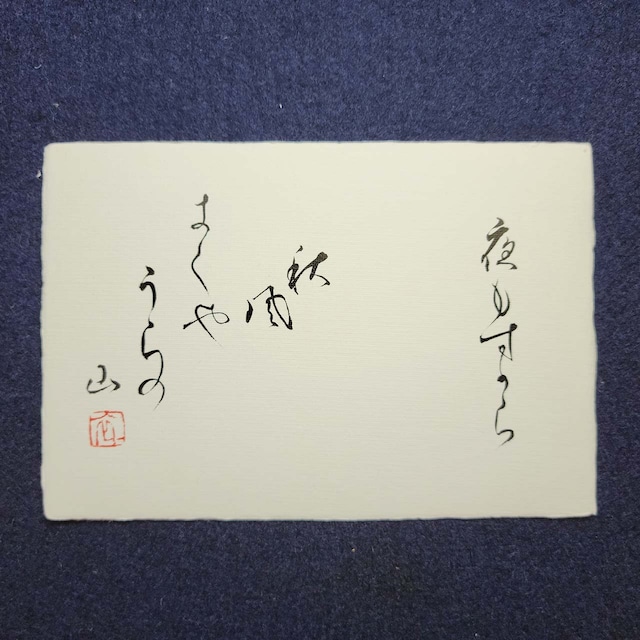 夜もすから
秋
風
きくや
うらの
山